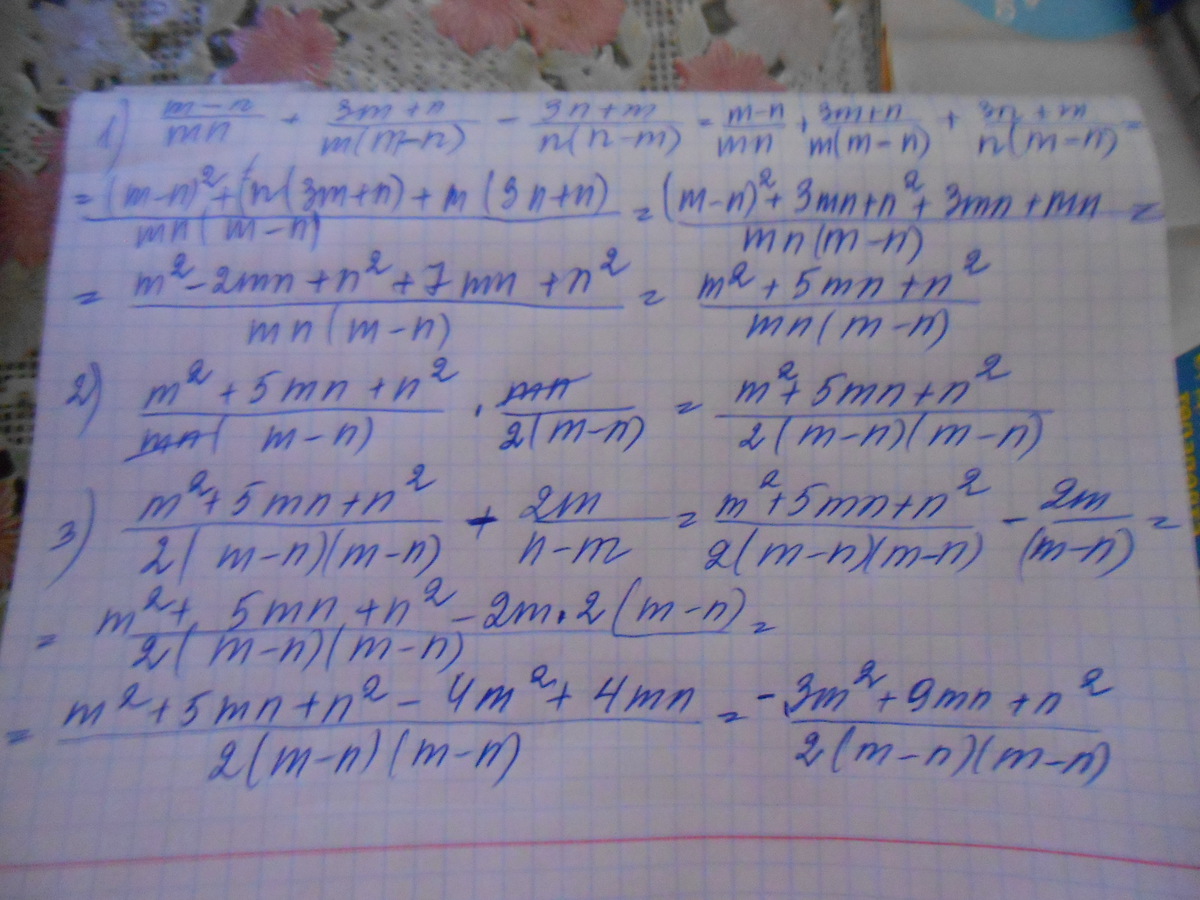 1) (m-n)/(mn) + (3m+n)/(m(m-n)) - (3n+m)/(n(n-m)) = (m-n)/(mn) + (3m+n)/(m(m-n)) + (3n+m)/(n(m-n)) =
= ((m-n)²+(n(3m+n)+m(3n+n))/(mn(m-n)) = ((m-n)²+3mn+n²+3mn+mn)/(mn(m-n)) =
= (m²-2mn+n²+7mn+n²)/(mn(m-n)) = (m²+5mn+n²)/(mn(m-n))
2) (m²+5mn+n²)/(mn(m-n)) · (mn)/(2(m-n)) = (m²+5mn+n²)/(2(m-n)(m-n))
3) (m²+5mn+n²)/(2(m-n)(m-n)) + (2m)/(n-m) = (m²+5mn+n²)/(2(m-n)(m-n)) - (2m)/((m-n)) =
= (m²+5mn+n²-2m·2(m-n))/(2(m-n)(m-n)) =
= (m²+5mn+n²-4m²+4mn)/(2(m-n)(m-n)) = (-3m²+9mn+n²)/(2(m-n)(m-n))